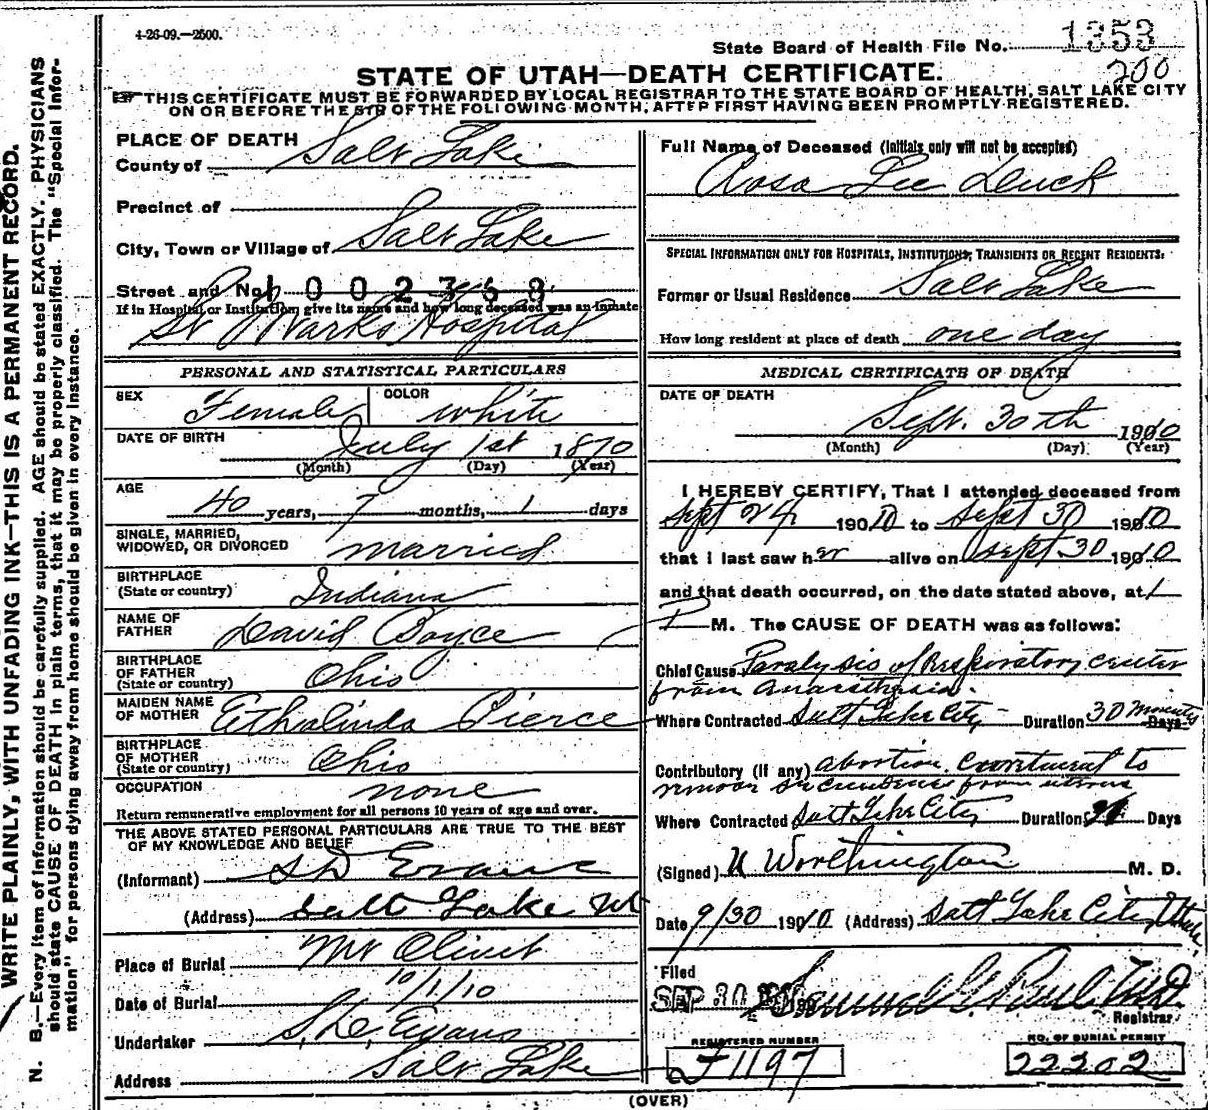 4-26-09.—2500.
State Board of Health File No. 1353
200
STATE OF UTAH—DEATH CERTIFICATE.
THIS CERTIFICATE MUST BE FORWARDED BY LOCAL REGISTRAR TO THE STATE BOARD OF HEALTH, SALT LAKE CITY
ON OR BEFORE THE 5TH OF THE FOLLOWING MONTH, AFTER FIRST HAVING BEEN PROMPTLY REGISTERED.
WRITE PLAINLY, WITH UNFADING INK—THIS IS A PERMANENT RECORD.
N. B.—Every item of information should be carefully supplied. AGE should be stated EXACTLY. PHYSICIANS
should state CAUSE OF DEATH in plain terms, that it may be properly classified. The "Special Infor-
mation" for persons dying away from home should be given in every instance.
PLACE OF DEATH
County of Salt Lake
Precinct of
City, Town or Village of Salt Lake
Street and No. 1002368
If in Hospital or Institution, give its name and how long deceased was an inmate
St Marks Hospital
PERSONAL AND STATISTICAL PARTICULARS
SEX Female COLOR White
DATE OF BIRTH July 1st 1870
(Month) (Day) (Year)
AGE 40 years, 7 months, 1 days
SINGLE, MARRIED,
WIDOWED, OR DIVORCED married
BIRTHPLACE
(State or country) Indiana
NAME OF
FATHER David Boyce
BIRTHPLACE
OF FATHER
(State or country) Ohio
MAIDEN NAME
OF MOTHER Ethalinda Pierce
BIRTHPLACE
OF MOTHER
(State or country) Ohio
OCCUPATION none
Return remunerative employment for all persons 10 years of age and over.
THE ABOVE STATED PERSONAL PARTICULARS ARE TRUE TO THE BEST
OF MY KNOWLEDGE AND BELIEF
(Informant) S D Evans
(Address) Salt Lake Ut
Place of Burial Mt Olivet
Date of Burial 10/1/10
Undertaker S. D. Evans
Address Salt Lake
Full Name of Deceased (Initials only will not be accepted)
Rosa Lee Deuck
SPECIAL INFORMATION ONLY FOR HOSPITALS, INSTITUTIONS, TRANSIENTS OR RECENT RESIDENTS:
Former or Usual Residence Salt Lake
How long resident at place of death one day
MEDICAL CERTIFICATE OF DEATH
DATE OF DEATH
Sept. 30th 1910
(Month) (Day) (Year)
I HEREBY CERTIFY, That I attended deceased from
Sept 24 1910 to Sept 30 1910
that I last saw her alive on Sept 30 1910
and that death occurred, on the date stated above, at 1
P M. The CAUSE OF DEATH was as follows:
Chief Cause Paralysis of Respiratory center
from Anaesthesia.
Where Contracted Salt Lake City Duration 30 minutes Days
Contributory (if any) abortion. to
remove from uterus
Where Contracted Salt Lake City Duration Days
(Signed) U Worthington M. D.
Date 9/30 1910 (Address) Salt Lake City Utah
Filed
SEP 30 Samuel G. Paul M.D.
Registrar
REGISTERED NUMBER
F1197
NO. OF BURIAL PERMIT
22202
(OVER)